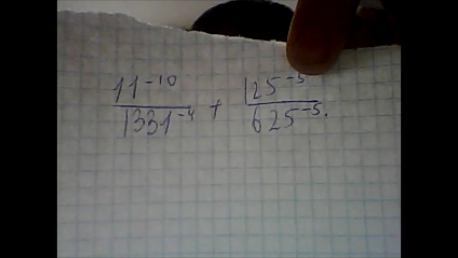 11⁻¹⁰/1331⁻⁴ + 125⁻⁵/625⁻⁵.